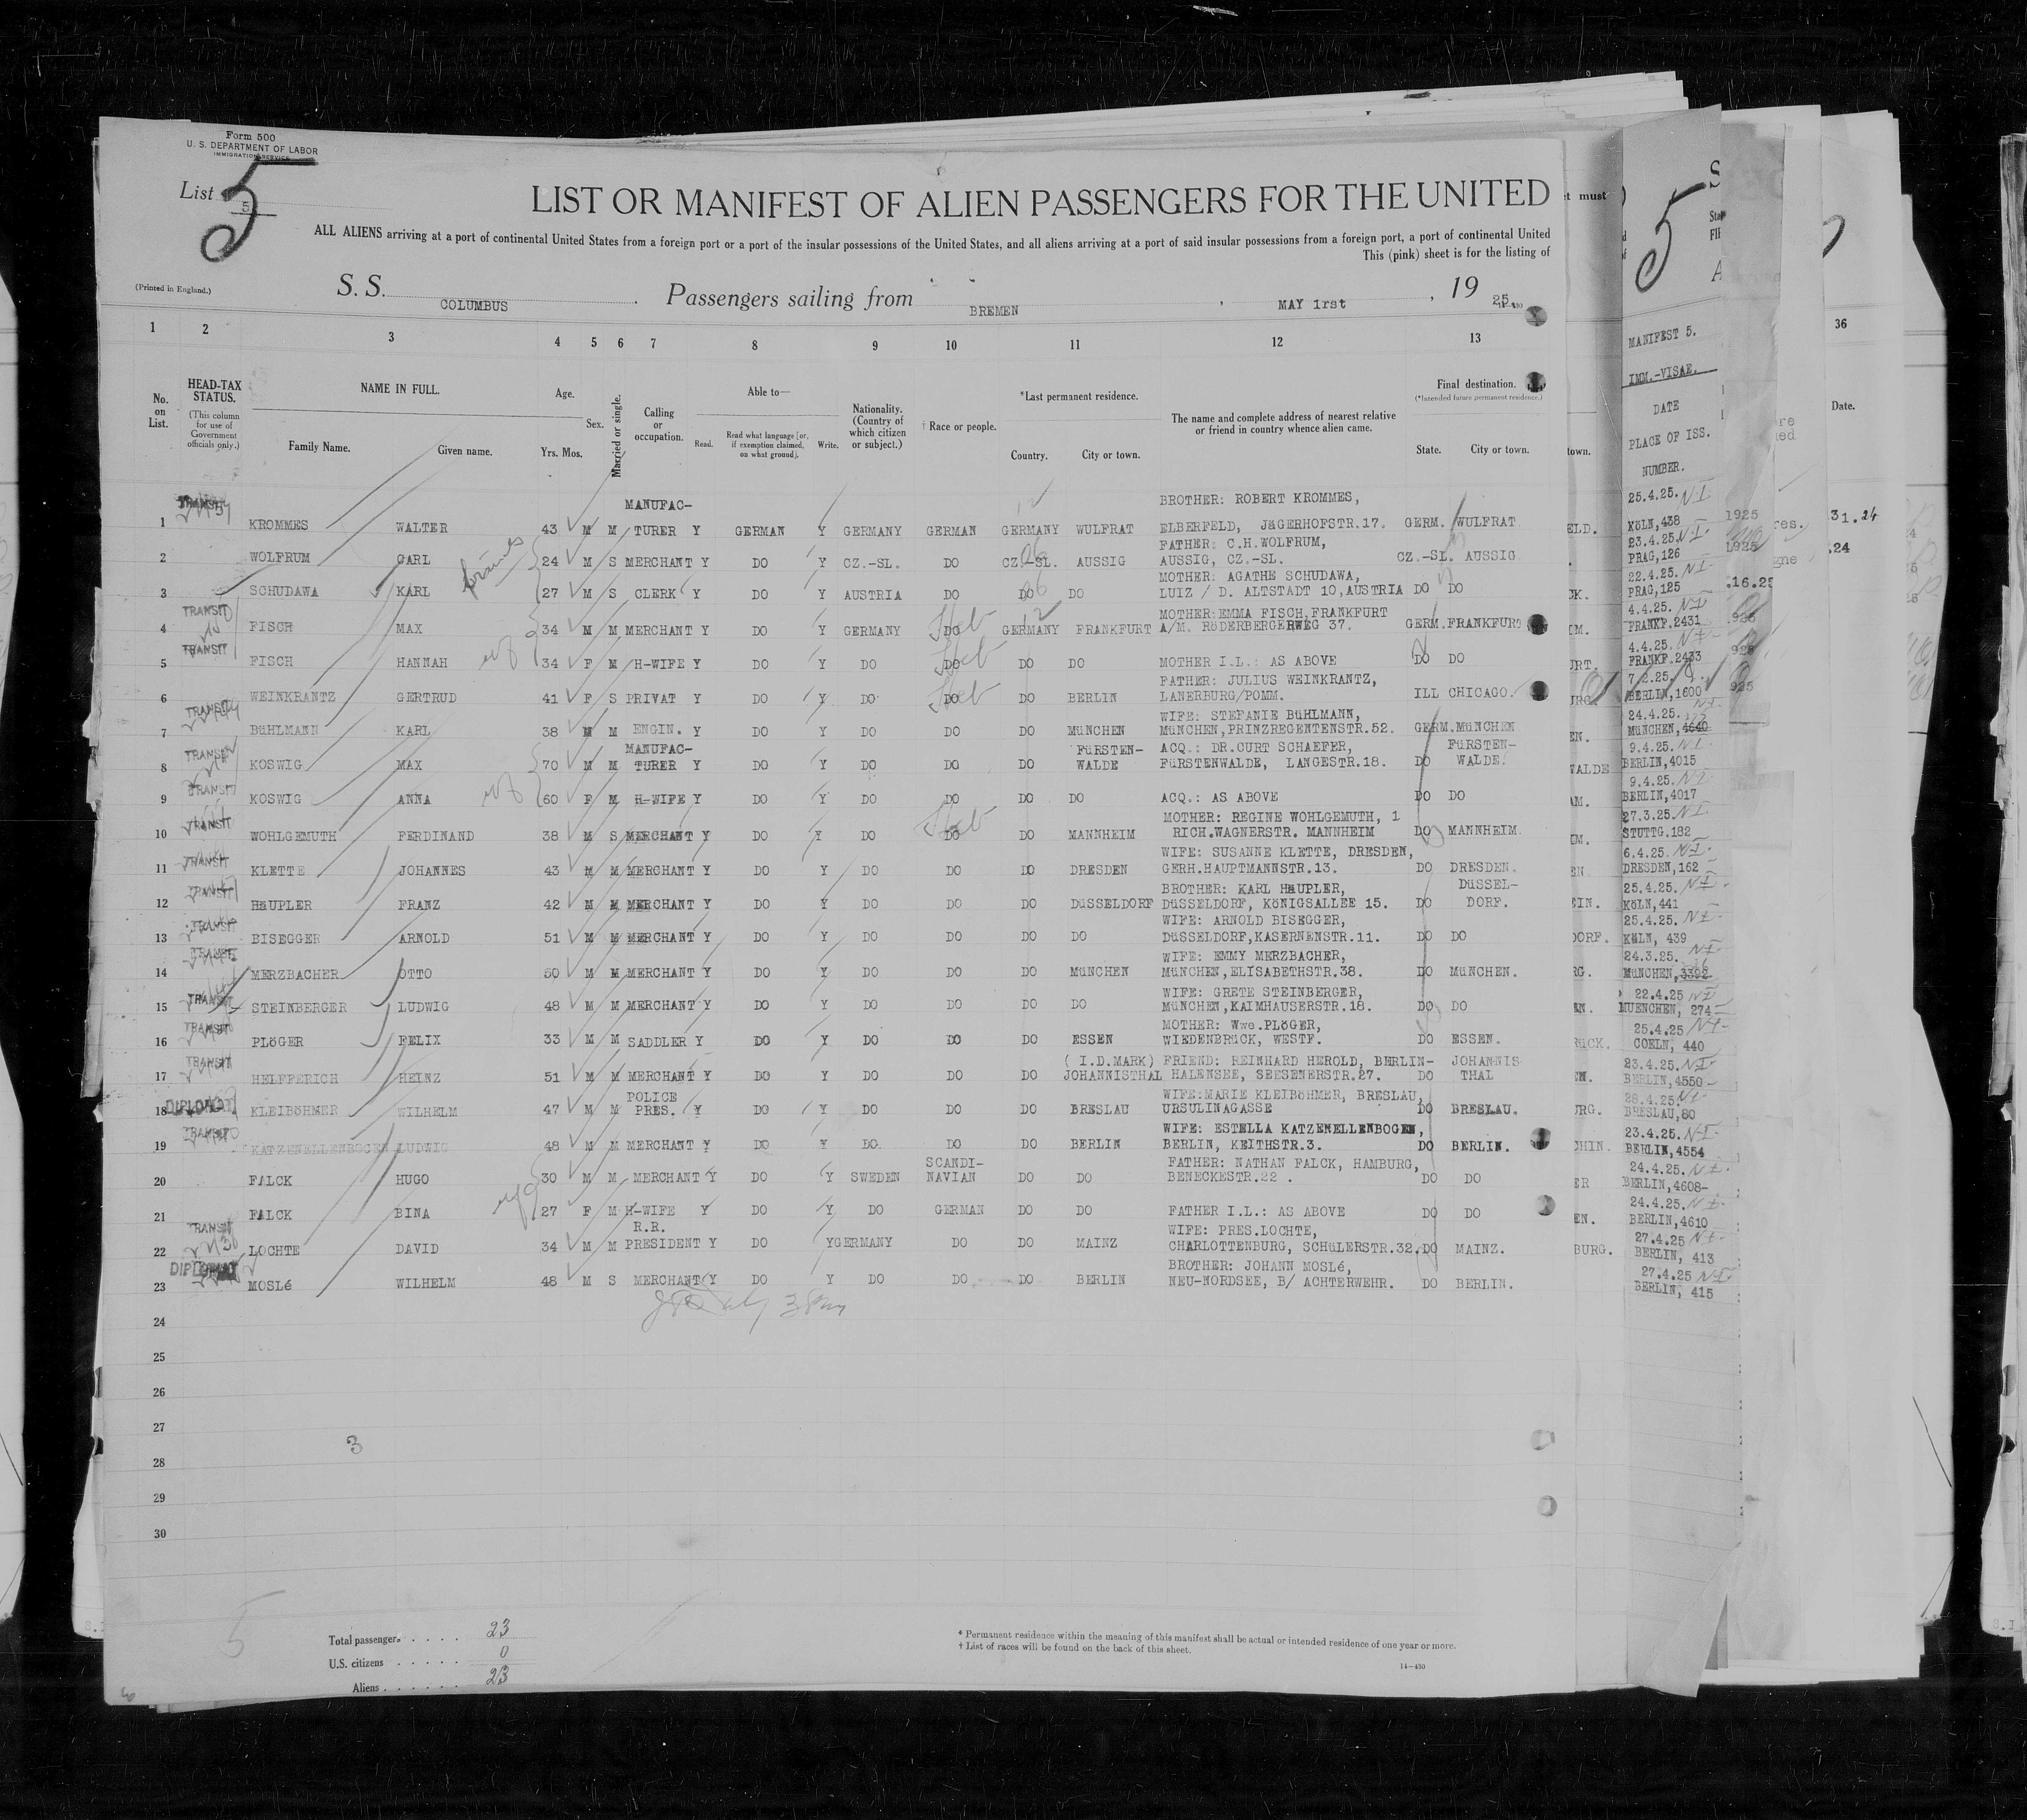 Form 500
U. S. DEPARTMENT OF LABOR
IMMIGRATION SERVICE
List 5
5
LIST OR MANIFEST OF ALIEN PASSENGERS FOR THE UNITED
ALL ALIENS arriving at a port of continental United States from a foreign port or a port of the insular possessions of the United States, and all aliens arriving at a port of said insular possessions from a foreign port, a port of continental United
This (pink) sheet is for the listing of
(Printed in England.)
S. S. COLUMBUS Passengers sailing from BREMEN , MAY 1rst , 19 25.
1 2 3 4 5 6 7 8 9 10 11 12 13 36
No. on List.
HEAD-TAX STATUS. (This column for use of Government officials only.)
NAME IN FULL. Family Name. Given name.
Age. Yrs. Mos.
Sex.
Married or single.
Calling or occupation.
Able to— Read. Read what language [or, if exemption claimed, on what ground]. Write.
Nationality. (Country of which citizen or subject.)
† Race or people.
*Last permanent residence. Country. City or town.
The name and complete address of nearest relative or friend in country whence alien came.
Final destination. (*Intended future permanent residence.) State. City or town.
MANIFEST 5.
IMM.-VISAE.
DATE
PLACE OF ISS.
NUMBER.
Date.
1 TRANSIT KROMMES WALTER 43 M M MANUFAC-TURER Y GERMAN Y GERMANY GERMAN GERMANY WULFRAT BROTHER: ROBERT KROMMES, ELBERFELD, JäGERHOFSTR.17. GERM. WULFRAT. 25.4.25. KöLN,438
2 WOLFRUM CARL 24 M S MERCHANT Y DO Y CZ.-SL. DO CZ.-SL. AUSSIG FATHER: C.H.WOLFRUM, AUSSIG, CZ.-SL. CZ.-SL. AUSSIG. 23.4.25. PRAG,126
3 SCHUDAWA KARL 27 M S CLERK Y DO Y AUSTRIA DO DO DO MOTHER: AGATHE SCHUDAWA, LUIZ / D. ALTSTADT 10,AUSTRIA DO DO 22.4.25. PRAG,125
4 TRANSIT FISCH MAX 34 M M MERCHANT Y DO Y GERMANY DO Heb GERMANY FRANKFURT MOTHER:EMMA FISCH,FRANKFURT A/M. RöDERBERGERWEG 37. GERM.FRANKFURT 4.4.25. FRANKF.2431
5 TRANSIT FISCH HANNAH 34 F M H-WIFE Y DO Y DO DO Heb DO DO MOTHER I.L.: AS ABOVE DO DO 4.4.25. FRANKF.2433
6 WEINKRANTZ GERTRUD 41 F S PRIVAT Y DO Y DO DO Heb DO BERLIN FATHER: JULIUS WEINKRANTZ, LANERBURG/POMM. ILL CHICAGO. 7/2.25. BERLIN,1600
7 TRANSIT BüHLMANN KARL 38 M M ENGIN. Y DO Y DO DO DO MüNCHEN WIFE: STEFANIE BüHLMANN, MüNCHEN,PRINZREGENTENSTR.52. GERM.MüNCHEN 24.4.25. MüNCHEN,4640
8 TRANSIT KOSWIG MAX 70 M M MANUFAC-TURER Y DO Y DO DO DO FüRSTEN-WALDE ACQ.: DR.CURT SCHAEFER, FüRSTENWALDE, LANGESTR.18. DO FüRSTEN-WALDE. 9.4.25. BERLIN,4015
9 TRANSIT KOSWIG ANNA 60 F M H-WIFE Y DO Y DO DO DO DO ACQ.: AS ABOVE DO DO 9.4.25. BERLIN,4017
10 TRANSIT WOHLGEMUTH FERDINAND 38 M S MERCHANT Y DO Y DO DO Heb DO MANNHEIM MOTHER: REGINE WOHLGEMUTH, 1 RICH.WAGNERSTR. MANNHEIM DO MANNHEIM. 27.3.25. STUTTG.182
11 TRANSIT KLETTE JOHANNES 43 M M MERCHANT Y DO Y DO DO DO DRESDEN WIFE: SUSANNE KLETTE, DRESDEN, GERH.HAUPTMANNSTR.13. DO DRESDEN. 6.4.25. DRESDEN,162
12 TRANSIT HäUPLER FRANZ 42 M M MERCHANT Y DO Y DO DO DO DüSSELDORF BROTHER: KARL HäUPLER, DüSSELDORF, KöNIGSALLEE 15. DO DüSSEL-DORF. 25.4.25. KöLN,441
13 TRANSIT BISEGGER ARNOLD 51 M M MERCHANT Y DO Y DO DO DO DO WIFE: ARNOLD BISEGGER, DüSSELDORF,KASERNENSTR.11. DO DO 25.4.25. KöLN, 439
14 TRANSIT MERZBACHER OTTO 50 M M MERCHANT Y DO Y DO DO DO MüNCHEN WIFE: EMMY MERZBACHER, MüNCHEN,ELISABETHSTR.38. DO MüNCHEN. 24.3.25. MüNCHEN,3392
15 TRANSIT STEINBERGER LUDWIG 48 M M MERCHANT Y DO Y DO DO DO DO WIFE: GRETE STEINBERGER, MüNCHEN,KAIMHAUSERSTR.18. DO DO 22.4.25 MUENCHEN, 274
16 TRANSIT PLöGER FELIX 33 M M SADDLER Y DO Y DO DO DO ESSEN MOTHER: Wwe.PLöGER, WIEDENBRüCK, WESTF. DO ESSEN. 25.4.25 COELN, 440
17 TRANSIT HELFFERICH HEINZ 51 M M MERCHANT Y DO Y DO DO DO ( I.D.MARK) JOHANNISTHAL FRIEND: REINHARD HEROLD, BERLIN-HALENSEE, SEESENERSTR.27. DO JOHANNIS THAL 23.4.25. BERLIN,4550
18 DIPLOMAT KLEIBöHMER WILHELM 47 M M POLICE PRES. Y DO Y DO DO DO BRESLAU WIFE:MARIE KLEIBöHMER, BRESLAU, URSULINAGASSE DO BRESLAU. 28.4.25. BRESLAU,80
19 TRANSIT KATZENELLENBOGEN LUDWIG 48 M M MERCHANT Y DO Y DO. DO DO BERLIN WIFE: ESTELLA KATZENELLENBOGEN, BERLIN, KEITHSTR.3. DO BERLIN. 23.4.25. BERLIN,4554
20 FALCK HUGO 30 M M MERCHANT Y DO Y SWEDEN SCANDI-NAVIAN DO DO FATHER: NATHAN FALCK, HAMBURG, BENECKESTR.22 . DO DO 24.4.25. BERLIN,4608-
21 FALCK BINA 27 F M H-WIFE Y DO Y DO GERMAN DO DO FATHER I.L.: AS ABOVE DO DO 24.4.25. BERLIN,4610
22 TRANSIT LOCHTE DAVID 34 M M R.R. PRESIDENT Y DO Y GERMANY DO DO MAINZ WIFE: PRES.LOCHTE, CHARLOTTENBURG, SCHüLERSTR.32. DO MAINZ. 27.4.25 BERLIN, 413
23 DIPLOMAT MOSLé WILHELM 48 M S MERCHANT Y DO Y DO DO DO BERLIN BROTHER: JOHANN MOSLé, NEU-NORDSEE, B/ ACHTERWEHR. DO BERLIN. 27.4.25 BERLIN, 415
24
25
26
27
28
29
30
3
5
Total passengers 23
U.S. citizens 0
Aliens 23
* Permanent residence within the meaning of this manifest shall be actual or intended residence of one year or more.
† List of races will be found on the back of this sheet.
14—430